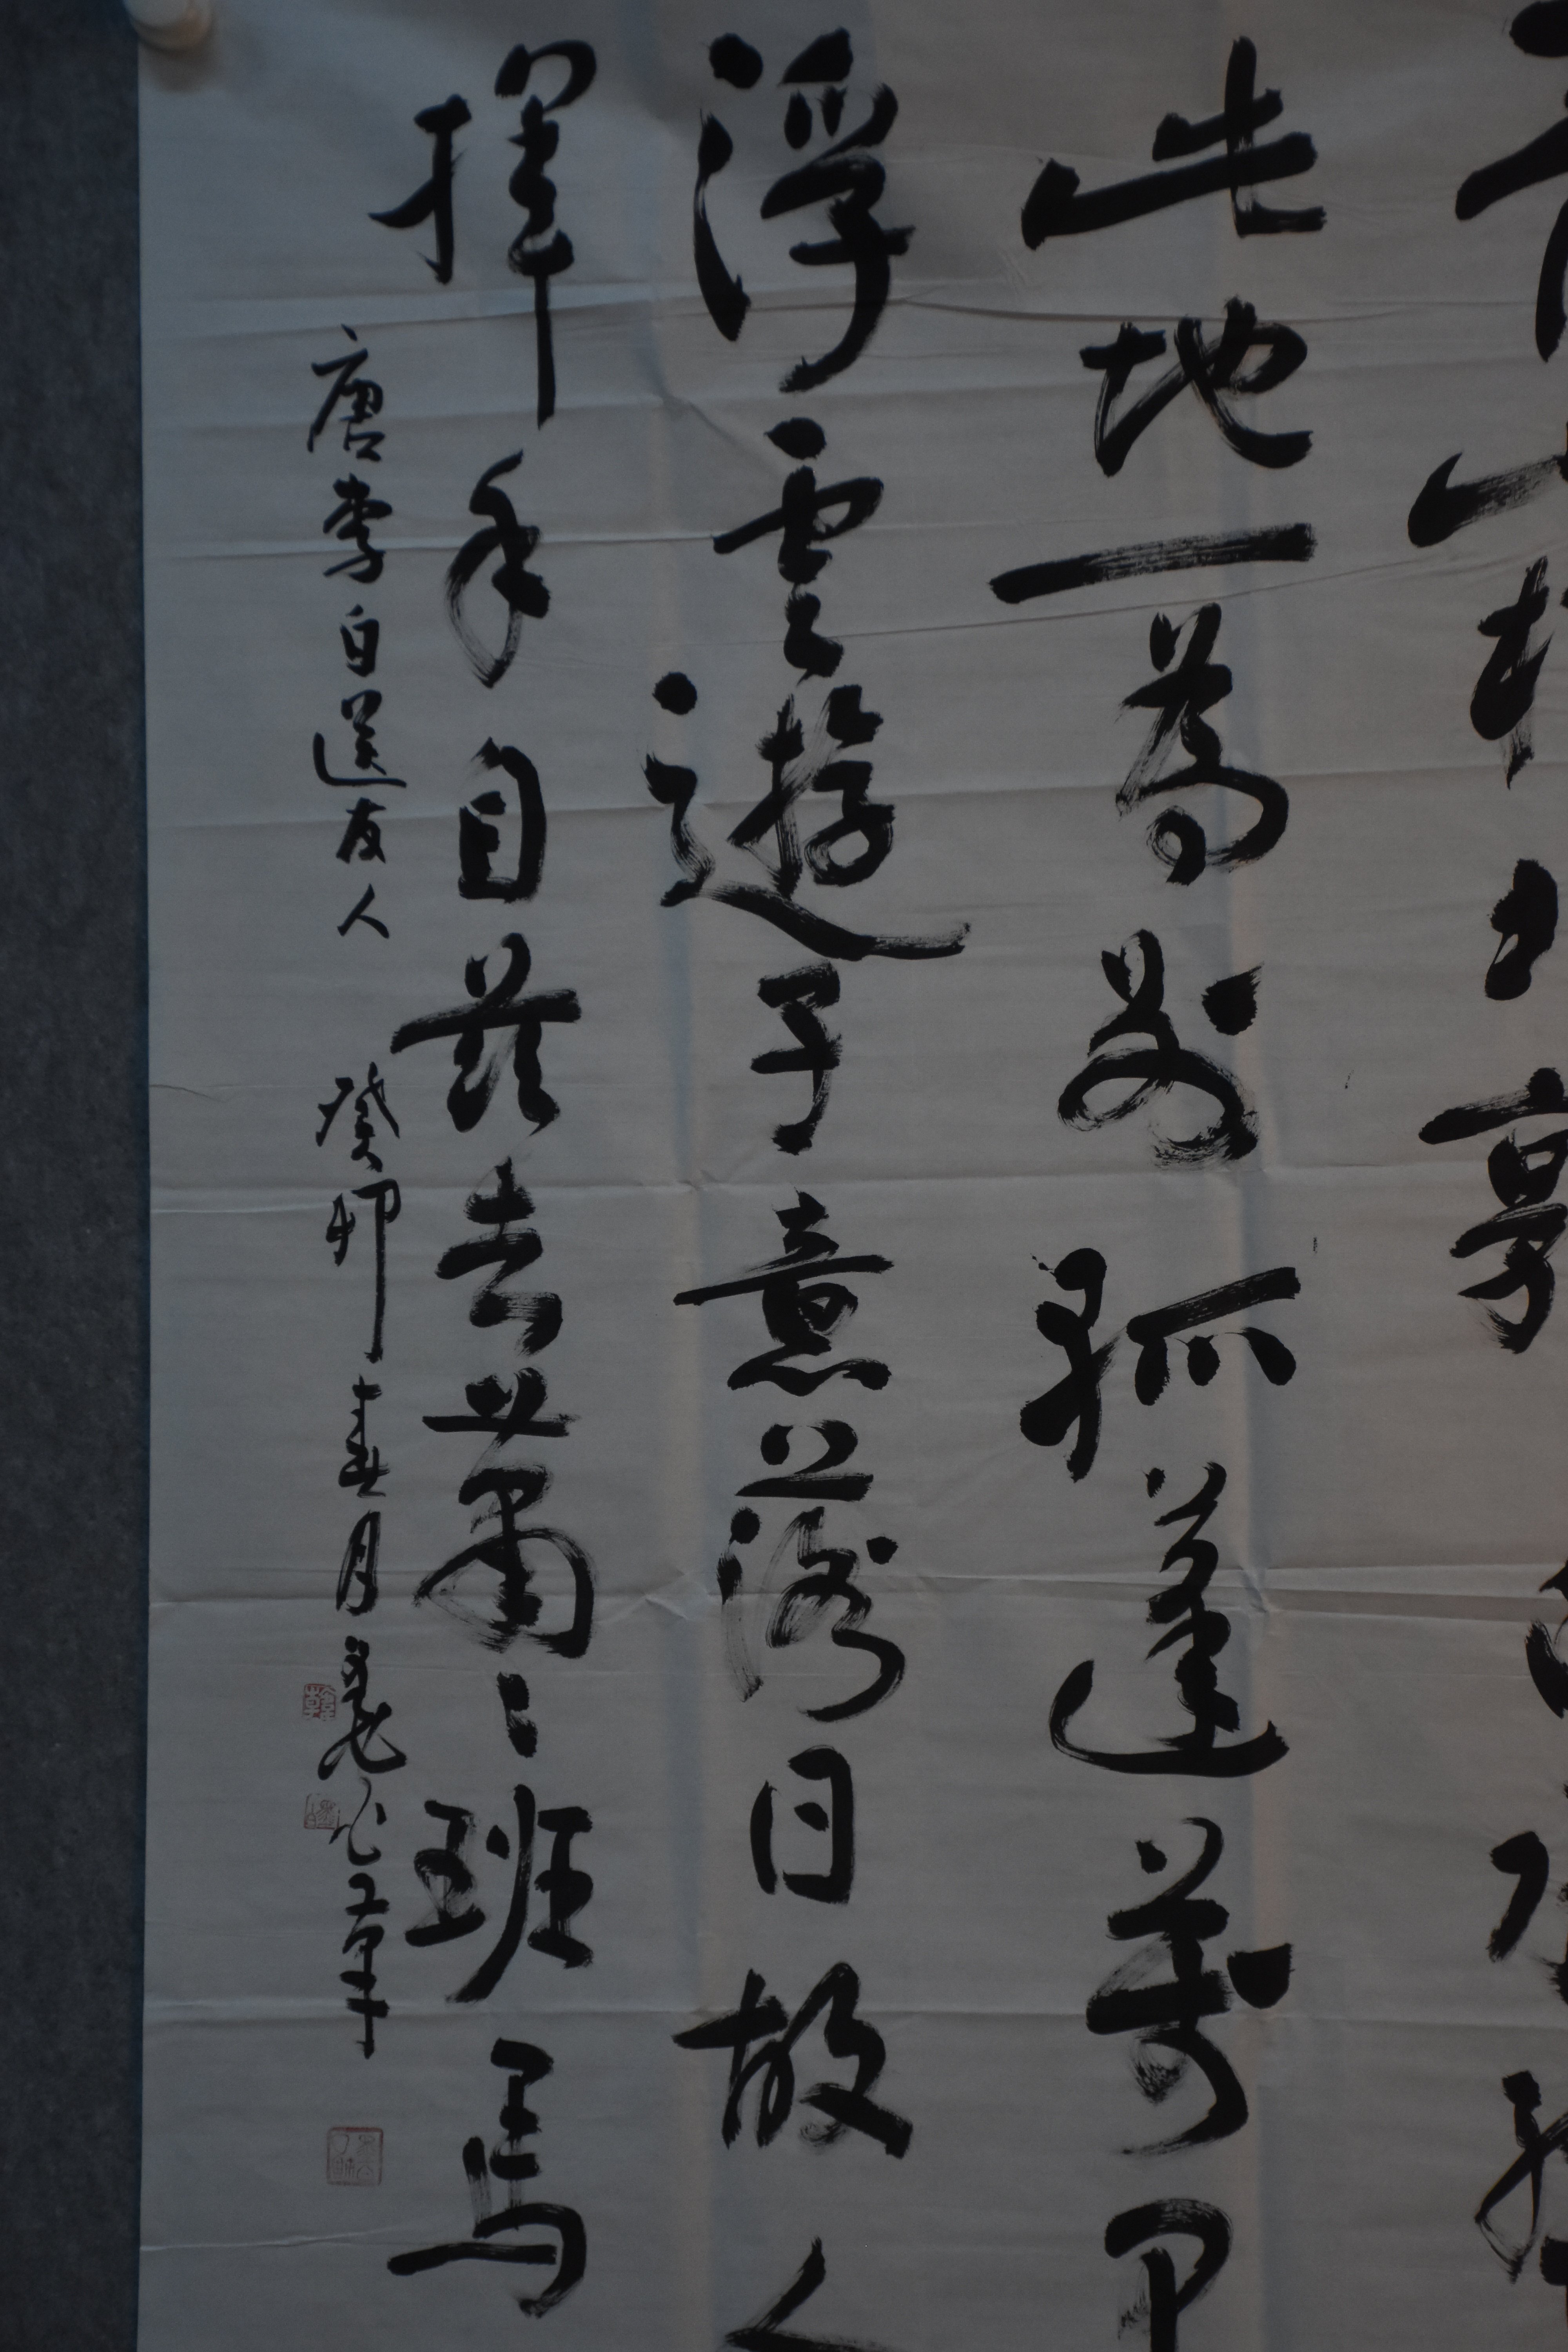 此地一為別孤蓬萬里
浮雲遊子意落日故人
揮手自茲去蕭〻班馬
唐李白送友人 癸卯春月